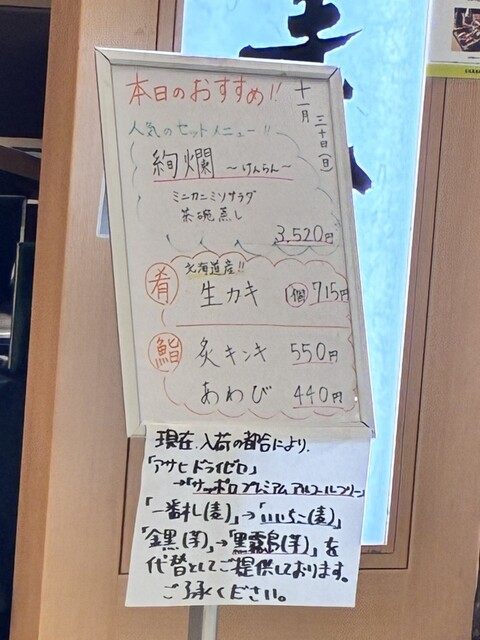 本日のおすすめ!!
十一月
三十日(日)
人気のセットメニュー!!
絢爛 〜けんらん〜
ミニカニミソサラダ
茶碗蒸し
3,520円
肴
北海道産!!
生カキ 1個 715円
鮨
炙キンキ 550円
あわび 440円
現在、入荷の都合により、
「アサヒドライゼロ」
→「サッポロプレミアムアルコールフリー」
「一番札(麦)」→「いいちこ(麦)」
「金黒(芋)」→「黒霧島(芋)」を
代替としてご提供しております。
ご了承ください。